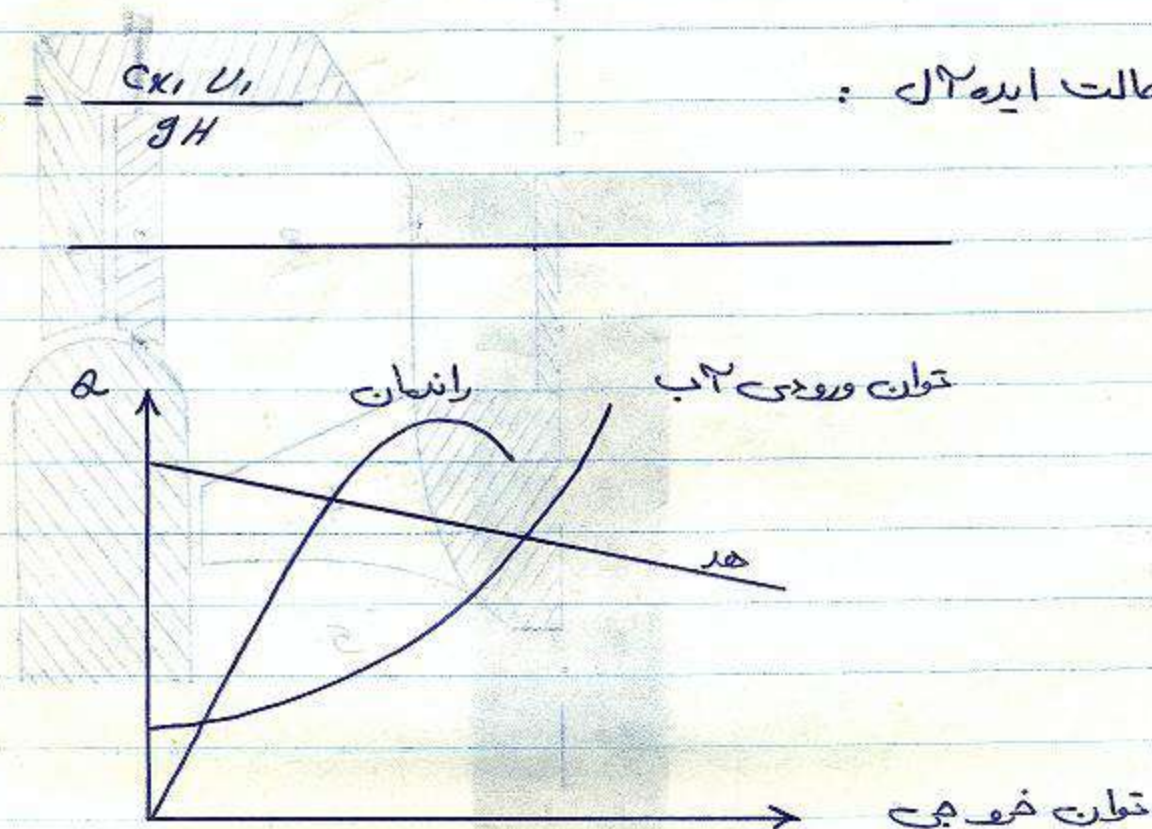 حالت ایده‌آل :
= Cx₁ U₁ / gH
Q
راندمان
توان ورودی آب
هد
توان خروجی